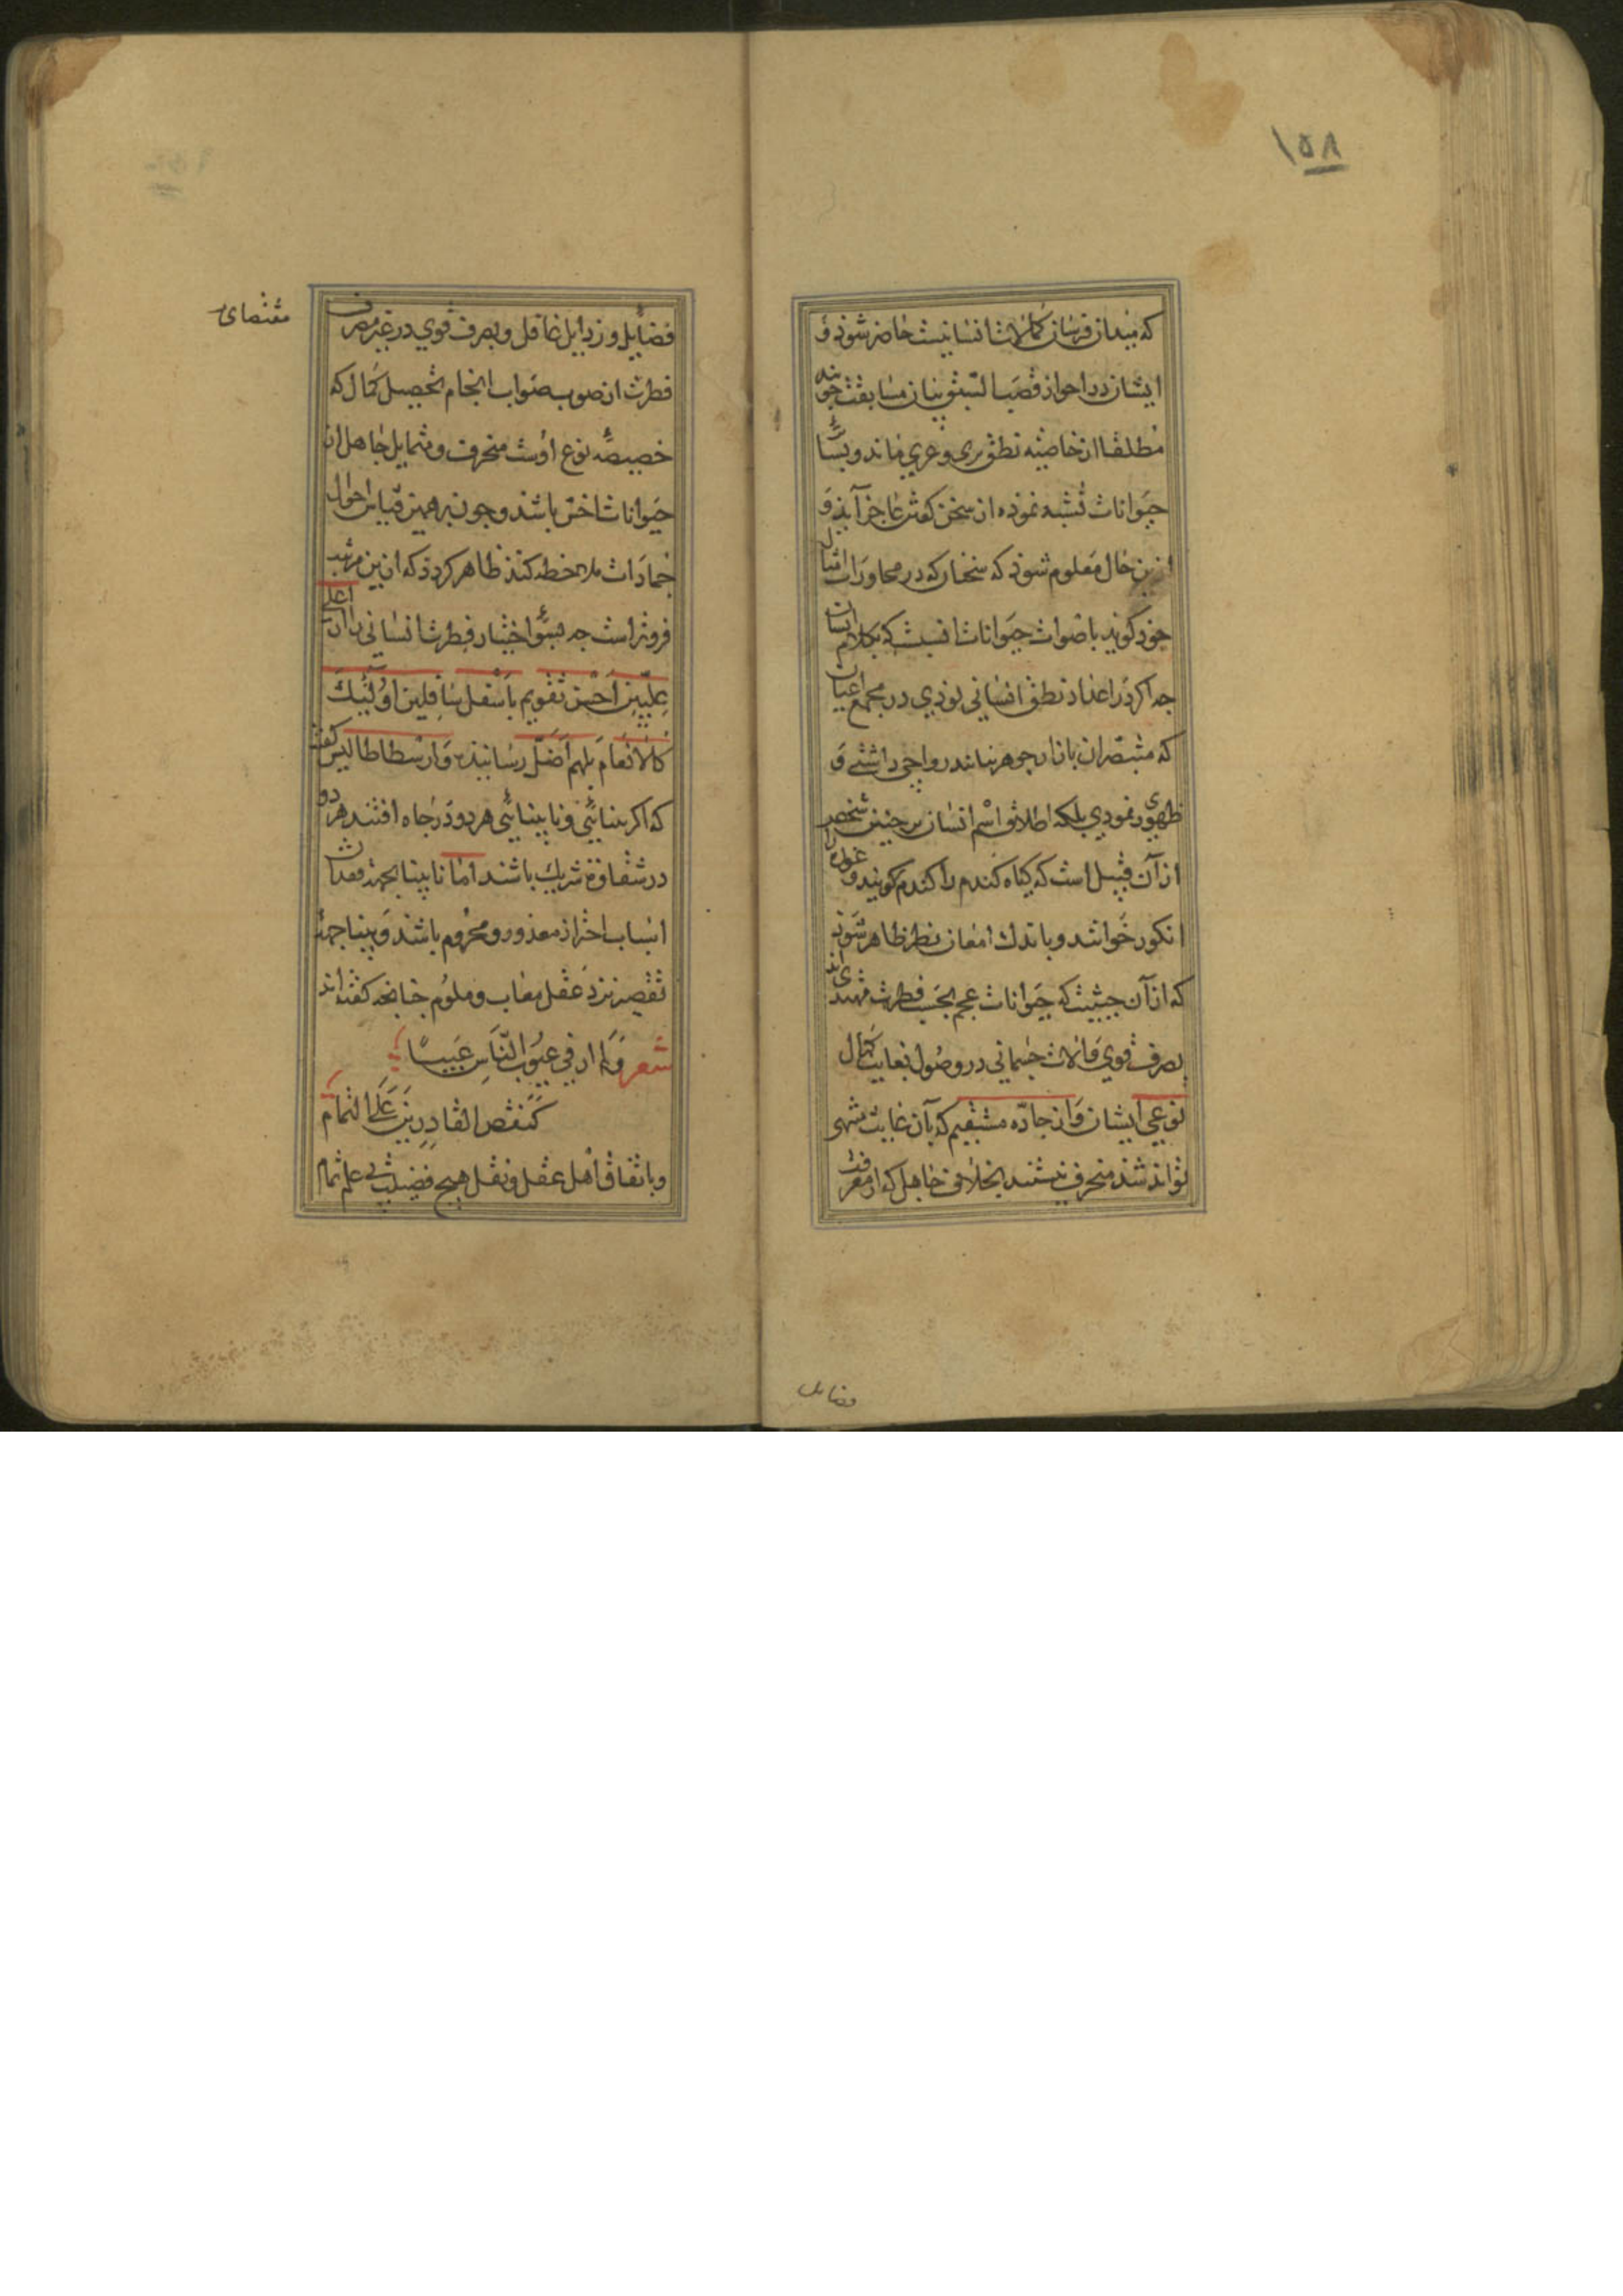 ١٥٨
که میدان فرسان کمالات انسانیست حاضر شوذ و
ایشان در احراز قصب السبق بیان مسابقت جویند
مطلقا از خاصیه نطق بری و عری ماند و بسایر
حیوانات تشبه نموذه از سخن گفتن عاجز آیذ و
ازین حال معلوم شوذ که سخنان که در محاورات امثال
خوذ گویند باصوات حیوانات انسبست که بکلام انسان
جه اکر در اعداد نطق انسانی بوذی در مجمع اعیان
که مبصران بازار جوهر بیانند رواجی داشتی و
ظهوری نمودی بلکه اطلاق اسم انسان بر جنین شخص
از آن قبیل است که کیاه کندم را کندم کویند و غوره را
انکور خوانند و باندك امعان نظر ظاهر شوذ
که از آن حیثیت که حیوانات عجم بحسب فطرت مهتدی‌اند
بصرف قوی و آلات جسمانی در وصول بغایت کمال
نوعی ایشان و از جاده مستقیم که بآن غایت منتهی
تواند شذ منحرف نیستند بخلاف جاهل که از معرفت
فضایل
مقتضای
فضایل و رذایل غافل و بصرف قوی در غیر مصرف
فطرت از صوب صواب انجام تحصیل کمال که
خصیصه نوع اوست منحرف و شمایل جاهل از
حیوانات اخس باشد و جون بر همین قیاس احوال
جمادات ملاحظه کنذ ظاهر کردذ که ازین مرتبه
فروتر است جه بسوء اختیار فطرت انسانی را از اعلی
علیین احسن تقویم باسفل سافلین اولئك
کالانعام بلهم اضل رسانیذه و ارسطاطالیس کفت
که اکر بینائی و نابینائی هر دو در جاه افتند هر دو
در شقاوة شریك باشند اما نابینا بجهة فقدان
اسباب احتراز معذور و محروم باشند و بینا جهة
تقصیر نزد عقل معاب و ملوم جنانجه کفته‌اند
شعر وَلم ار فی عیوب النّاسِ عیبًا
کنقص القادرین علی التمام
و باتفاق اهل عقل و نقل هیج فضیلت بی علم تمام